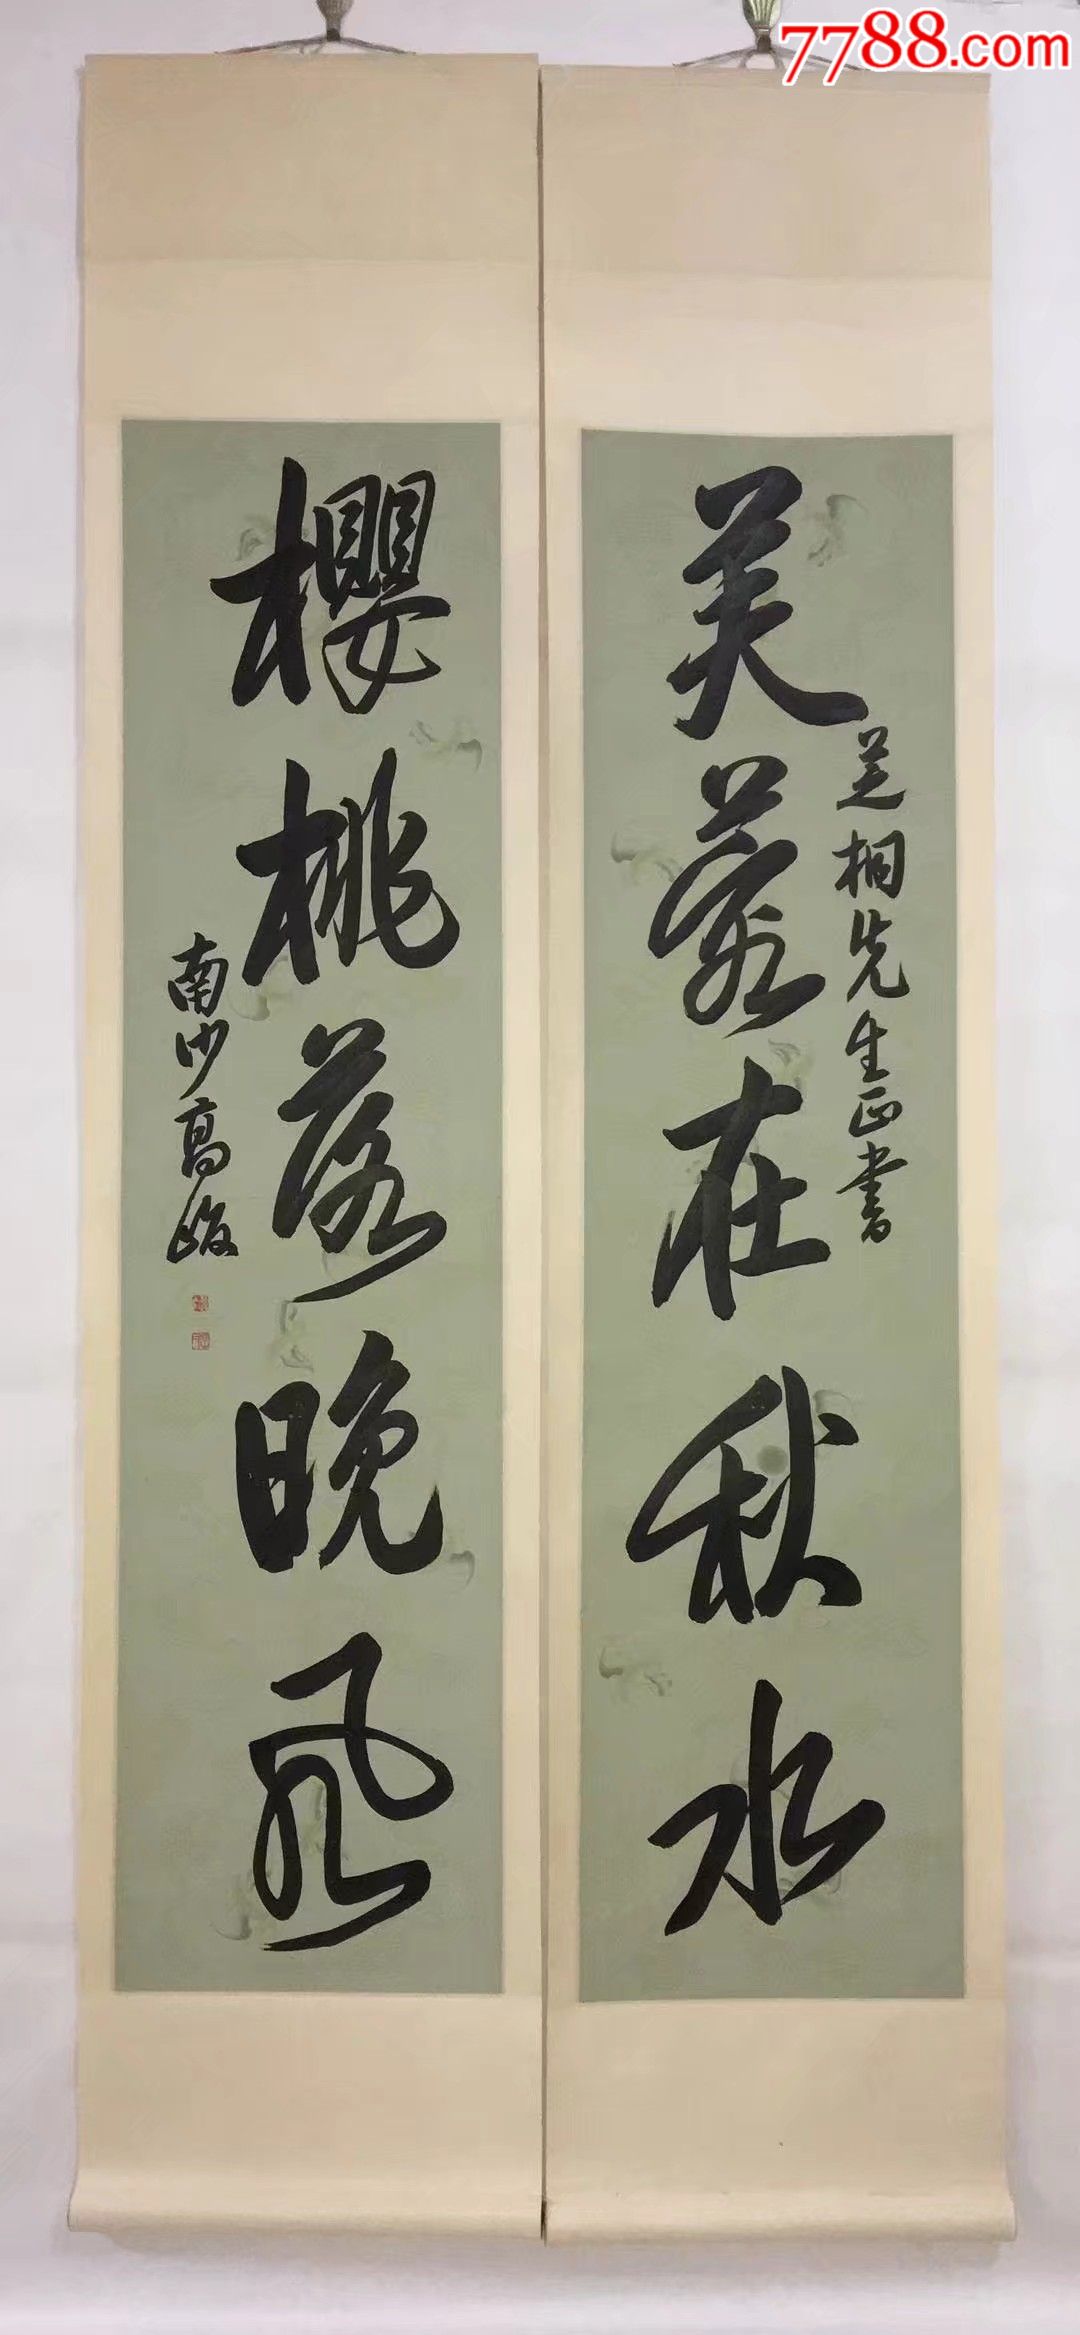 7788.com
芙蓉在秋水
芝桐先生正書
櫻桃落晚風
南沙高峻